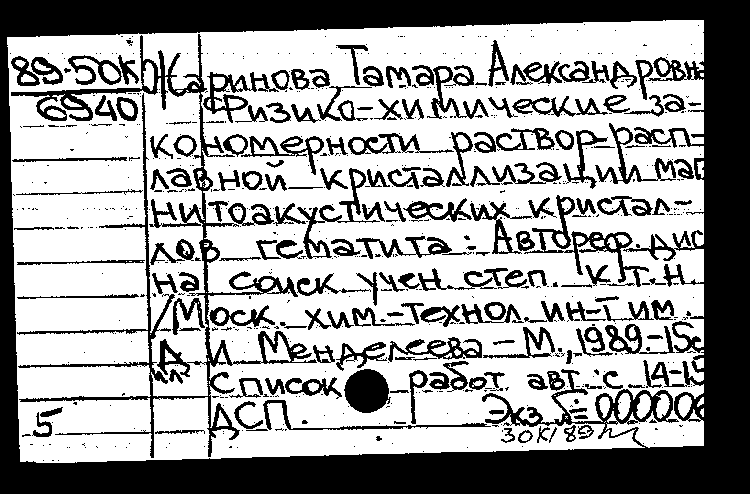 89-50К Жаринова Тамара Александровна
6940 Физико-химические за-
кономерности раствор-расп-
лавной кристаллизации маг
нитоакустических кристал-
лов гематита: Автореф. дис
на соиск. учен. степ. к.т.н.
/Моск. хим.-технол. ин-т им.
Д И Менделеева - М., 1989-15с
Список работ авт.: с 14-15
5 ДСП. Экз № 000006
30К/89